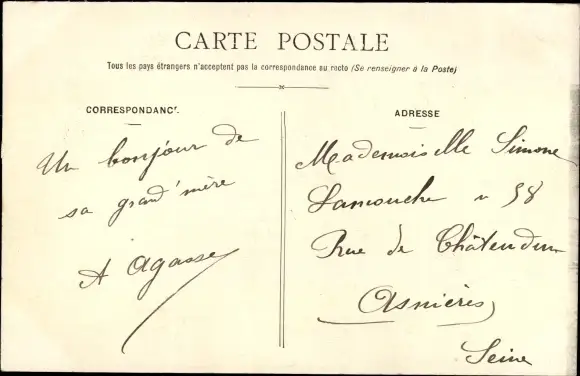 CARTE POSTALE
Tous les pays étrangers n'acceptent pas la correspondance au recto (Se renseigner à la Poste)
CORRESPONDANCE
Un bonjour de
sa grand'mère
A Agasse
ADRESSE
Mademoiselle Simone
n 58
Rue de Châteaudun
Asnières
Seine